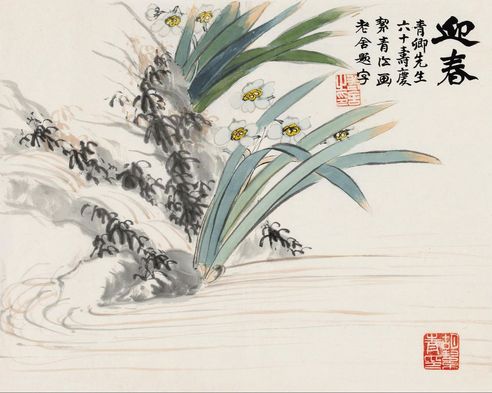 迎春
青卿先生
六十壽慶
絜青作画
老舍题字